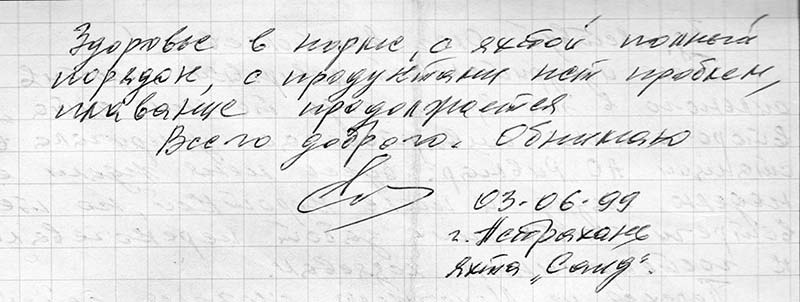 Здоровье в норме, с яхтой полный
порядок, с продуктами нет проблем,
плавание продолжается
Всего доброго. Обнимаю
03-06-99
г. Астрахань
яхта „Саид".